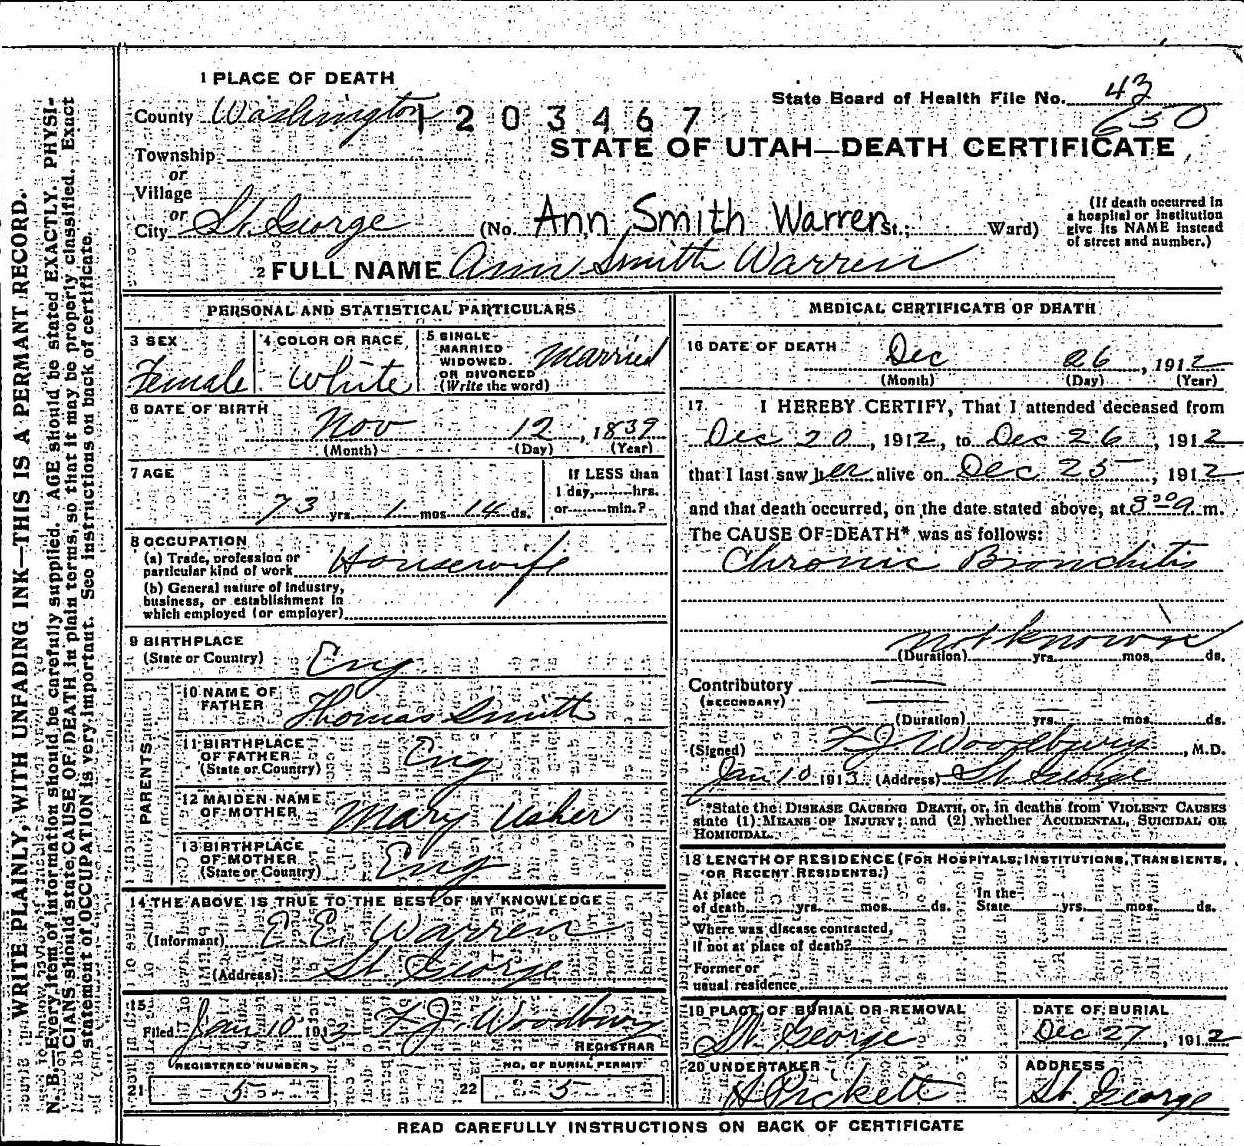 WRITE PLAINLY, WITH UNFADING INK—THIS IS A PERMANT RECORD.
N. B.—Every item of information should be carefully supplied. AGE should be stated EXACTLY. PHYSI-
CIANS should state CAUSE OF DEATH in plain terms, so that it may be properly classified. Exact
statement of OCCUPATION is very important. See instructions on back of certificate.
1 PLACE OF DEATH
County Washington
1203467
State Board of Health File No. 43
630
STATE OF UTAH—DEATH CERTIFICATE
Township
or
Village
or
City St. George (No. Ann Smith Warren St.; Ward)
(If death occurred in
a hospital or institution
give its NAME instead
of street and number.)
2 FULL NAME Ann Smith Warren
PERSONAL AND STATISTICAL PARTICULARS
3 SEX
Female
4 COLOR OR RACE
White
5 SINGLE
MARRIED
WIDOWED
OR DIVORCED
(Write the word)
Married
6 DATE OF BIRTH
Nov 12, 1839
(Month) (Day) (Year)
7 AGE
73 yrs. 1 mos. 14 ds.
If LESS than
1 day, hrs.
or min.?
8 OCCUPATION
(a) Trade, profession or
particular kind of work Housewife
(b) General nature of industry,
business, or establishment in
which employed (or employer)
9 BIRTHPLACE
(State or Country) Eng
PARENTS
10 NAME OF
FATHER Thomas Smith
11 BIRTHPLACE
OF FATHER
(State or Country) Eng
12 MAIDEN NAME
OF MOTHER Mary Usher
13 BIRTHPLACE
OF MOTHER
(State or Country) Eng
14 THE ABOVE IS TRUE TO THE BEST OF MY KNOWLEDGE
(Informant) E. E. Warren
(Address) St. George
15
Filed Jan 10 1913 F. J. Woodbury
REGISTRAR
REGISTERED NUMBER
21 5
NO. OF BURIAL PERMIT
22 5
MEDICAL CERTIFICATE OF DEATH
16 DATE OF DEATH
Dec 26, 1912
(Month) (Day) (Year)
17 I HEREBY CERTIFY, That I attended deceased from
Dec 20, 1912, to Dec 26, 1912
that I last saw her alive on Dec 25, 1912
and that death occurred, on the date stated above, at 3 20 a. m.
The CAUSE OF DEATH* was as follows:
Chronic Bronchitis
not known
(Duration) yrs. mos. ds.
Contributory
(SECONDARY)
(Duration) yrs. mos. ds.
(Signed) F. J. Woodbury, M.D.
Jan 10 1913 (Address) St. George
*State the DISEASE CAUSING DEATH, or, in deaths from VIOLENT CAUSES
state (1) MEANS OF INJURY; and (2) whether ACCIDENTAL, SUICIDAL OR
HOMICIDAL.
18 LENGTH OF RESIDENCE (FOR HOSPITALS, INSTITUTIONS, TRANSIENTS,
OR RECENT RESIDENTS.)
At place
of death yrs. mos. ds.
In the
State yrs. mos. ds.
Where was disease contracted,
If not at place of death?
Former or
usual residence
19 PLACE OF BURIAL OR REMOVAL
St. George
DATE OF BURIAL
Dec 27, 1912
20 UNDERTAKER
Pickett
ADDRESS
St. George
READ CAREFULLY INSTRUCTIONS ON BACK OF CERTIFICATE